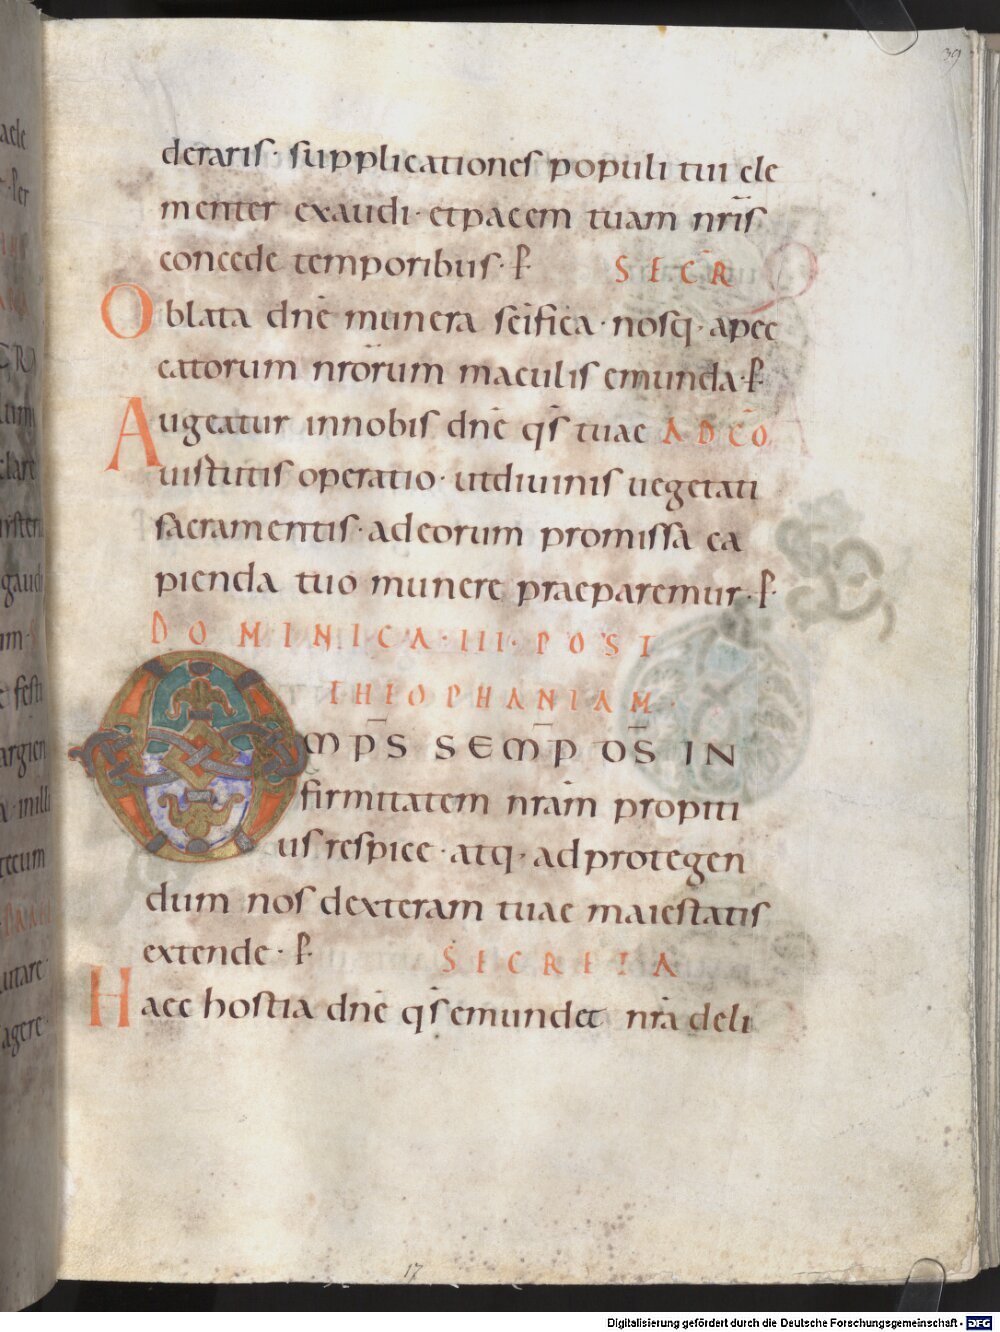 39
deraris· supplicationes populi tui cle
menter exaudi· et pacem tuam nr̄is
concede temporibus· p̲
SECR̄
Oblata dn̄e munera sc̄ifica· nosq· a pec
catorum nr̄orum maculis emunda· p̲
Augeatur in nobis dn̄e qs̄ tuae AD CŌ
uirtutis operatio· ut diuinis uegetati
sacramentis· ad eorum promissa ca
pienda tuo munere praeparemur· p̲
DOMINICA·III·POST
THEOPHANIAM·
OMP̄S SEMP̄ DS̄ IN
firmitatem nrām propiti
us respice· atq· ad protegen
dum nos dexteram tuae maiestatis
extende· p̲
SECRETA
Haec hostia dn̄e qs̄ emundet nr̄a deli
17
Digitalisierung gefördert durch die Deutsche Forschungsgemeinschaft - DFG